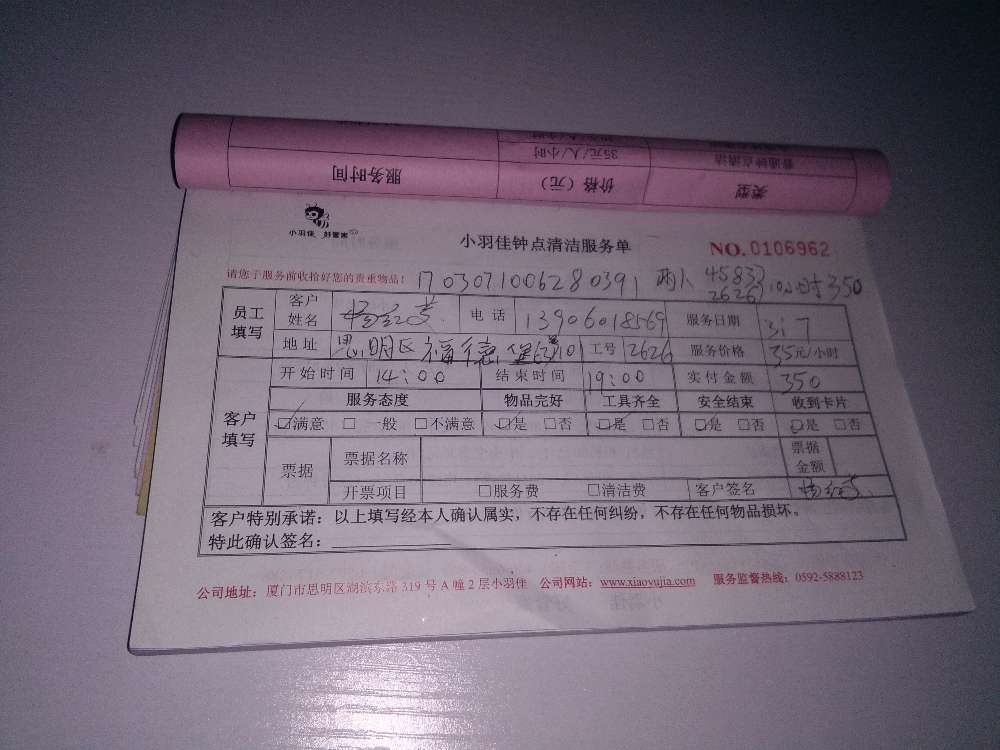 服务时间 价格（元） 类型
35元/人/小时 普通钟点清洁
小羽佳 好管家
小羽佳钟点清洁服务单 NO.0106962
请您于服务前收拾好您的贵重物品！ 1703071006280391 两人 45833 2626 10小时 350
员工填写 客户姓名 电话 13906018569 服务日期 3.7
地址 思明区福德堡 工号 2626 服务价格 35元/小时
开始时间 14:00 结束时间 19:00 实付金额 350
客户填写 服务态度 物品完好 工具齐全 安全结束 收到卡片
☑满意 □一般 □不满意 ☑是 □否 ☑是 □否 ☑是 □否 ☑是 □否
票据 票据名称 票据金额
开票项目 □服务费 □清洁费 客户签名
客户特别承诺：以上填写经本人确认属实，不存在任何纠纷，不存在任何物品损坏。
特此确认签名：
公司地址：厦门市思明区湖滨东路319号A幢2层小羽佳 公司网站：www.xiaoyujia.com 服务监督热线：0592-5888123